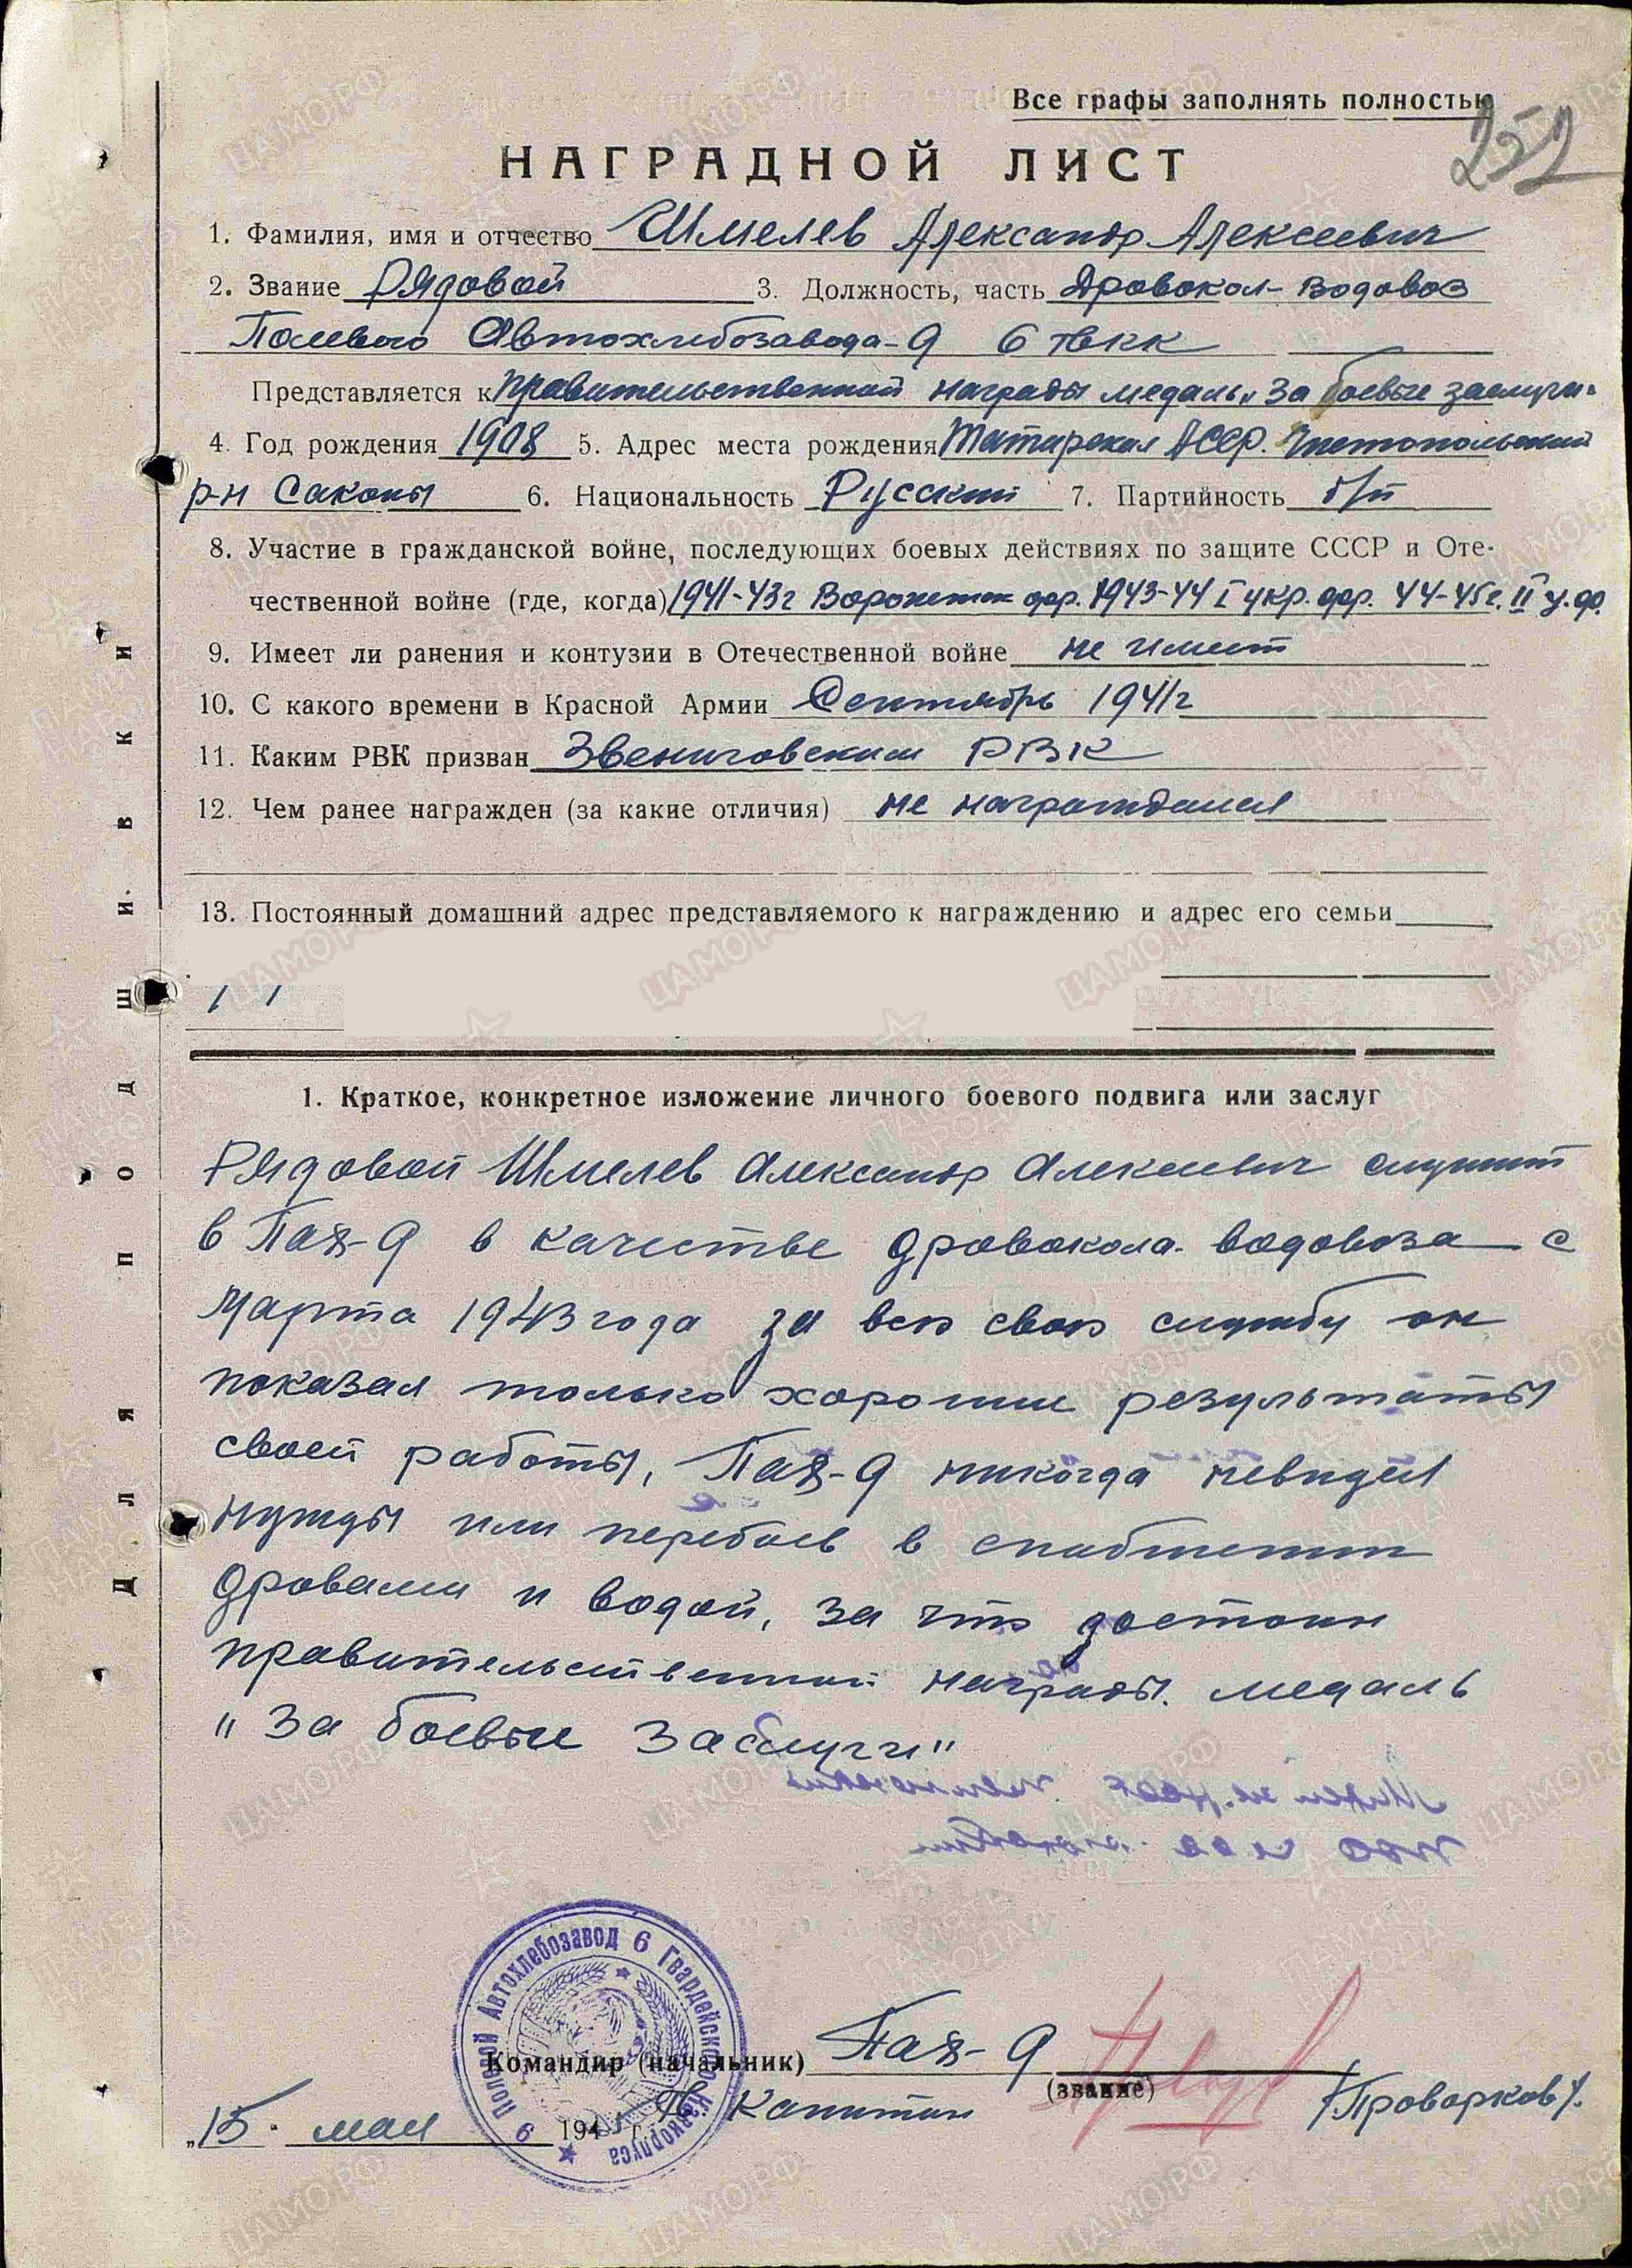 Все графы заполнять полностью
252
НАГРАДНОЙ ЛИСТ
1. Фамилия, имя и отчество Шмелев Александр Алексеевич
2. Звание Рядовой 3. Должность, часть Дровокол-Водовоз
Полевого Автохлебозавода-9 6 гвкк
Представляется к правительственной награды медаль „За боевые заслуги"
4. Год рождения 1908 5. Адрес места рождения Татарская АССР. Чистопольский
р-н Саконы 6. Национальность Русский 7. Партийность б/п
8. Участие в гражданской войне, последующих боевых действиях по защите СССР и Оте-
чественной войне (где, когда) 1941-43г Воронеж фр. 1943-44 I укр. фр. 44-45г. II у. ф.
9. Имеет ли ранения и контузии в Отечественной войне не имеет
10. С какого времени в Красной Армии Сентябрь 1941г
11. Каким РВК призван Звениговским РВК
12. Чем ранее награжден (за какие отличия) не награждался
13. Постоянный домашний адрес представляемого к награждению и адрес его семьи
1. Краткое, конкретное изложение личного боевого подвига или заслуг
Рядовой Шмелев Александр Алексеевич служит
в Пахз-9 в качестве дровокола-водовоза с
Марта 1943 года за всю свою службу он
показал только хорошие результаты
своей работы, Пахз-9 никогда невидел
нужды или перебоев в снабжении
дровами и водой, за что достоин
правительственной награды. медаль
"За боевые заслуги"
Командир (начальник) Пахз-9
(звание)
Гв Капитан /Проварков/.
„15" мая 1945 г.
9 Полевой Автохлебозавод 6 Гвардейского Кавкорпуса
Для подшивки
ЦАМО.РФ
ПАМЯТЬ НАРОДА